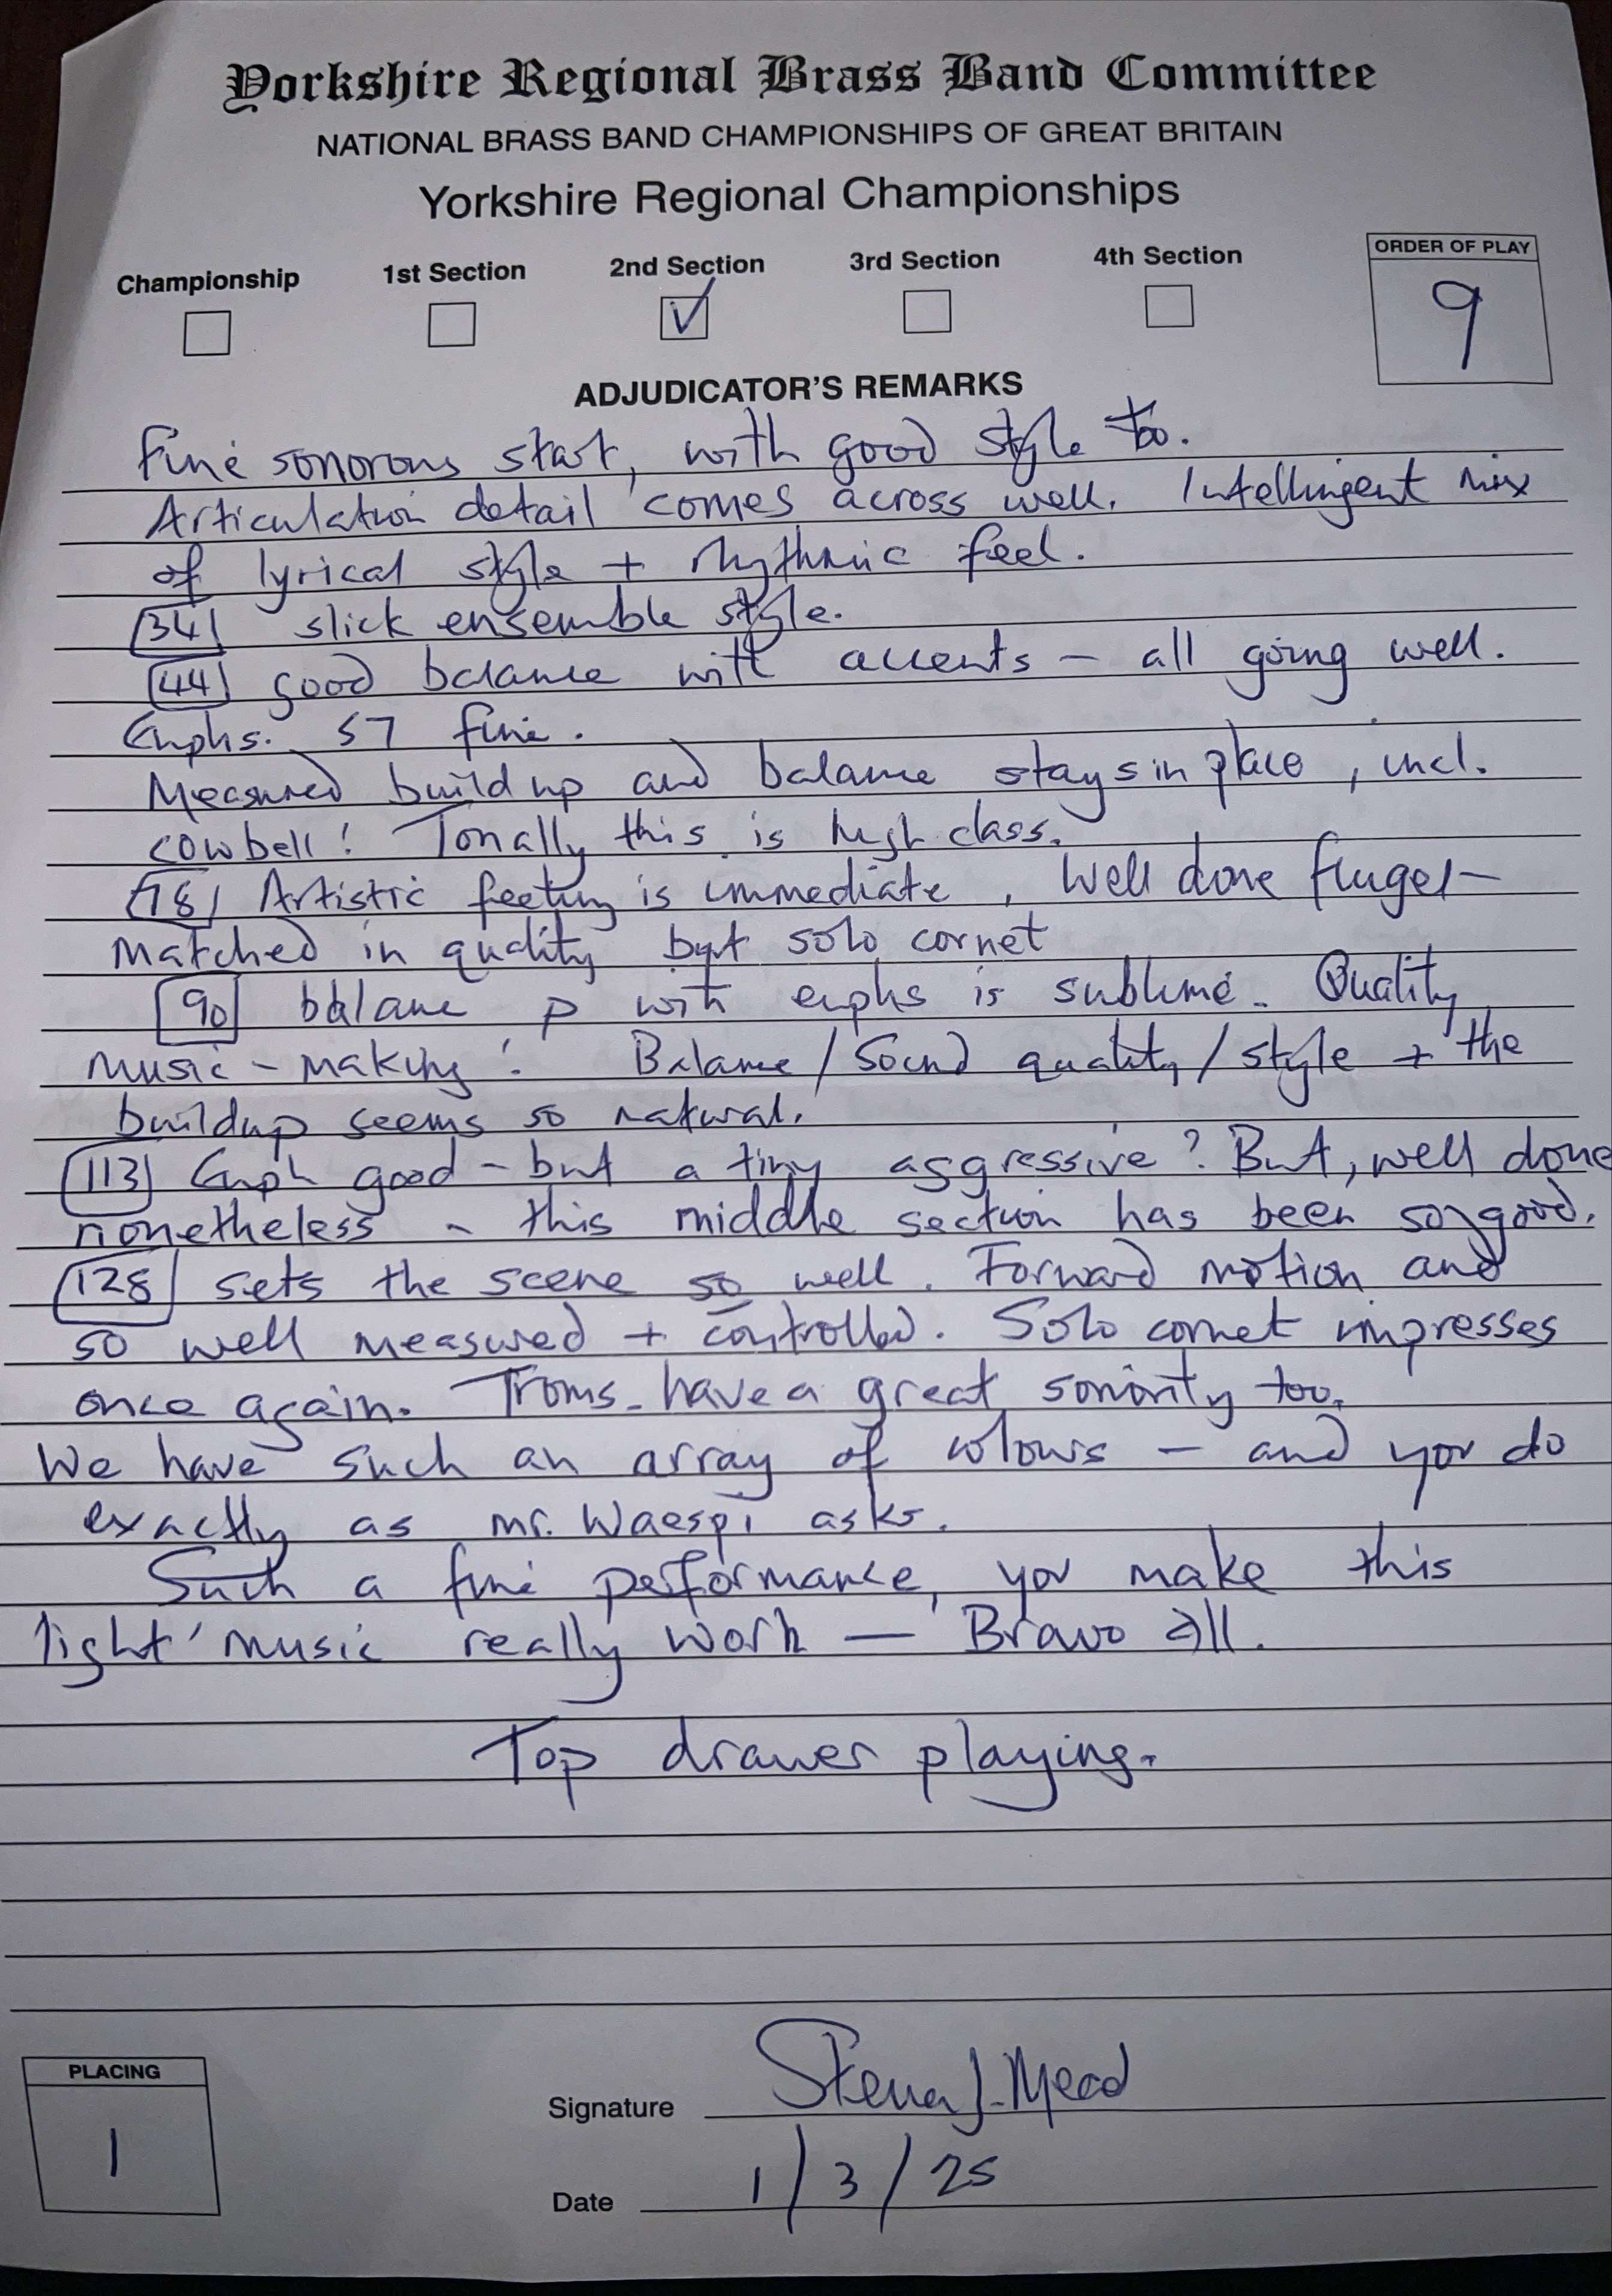 Yorkshire Regional Brass Band Committee
NATIONAL BRASS BAND CHAMPIONSHIPS OF GREAT BRITAIN
Yorkshire Regional Championships
Championship 1st Section 2nd Section 3rd Section 4th Section
ORDER OF PLAY
9
ADJUDICATOR'S REMARKS
Fine sonorous start, with good style too.
Articulation detail comes across well. Intelligent mix
of lyrical style + rhythmic feel.
34 slick ensemble style.
44 good balance with accents – all going well.
Euphs. 57 fine.
Measured build up and balance stays in place, incl.
cowbell! Tonally this is high class.
78 Artistic feeling is immediate, well done flugel –
matched in quality by solo cornet
90 balance p with euphs is sublime. Quality
music-making! Balance / sound quality / style + the
buildup seems so natural.
113 Euph good – but a tiny aggressive? But, well done
nonetheless – this middle section has been so good.
128 sets the scene so well. Forward motion and
so well measured + controlled. Solo cornet impresses
once again. Troms. have a great sonority too.
We have such an array of colours – and you do
exactly as Mr. Waespi asks.
Such a fine performance, you make this
light' music really work – Bravo all.
Top drawer playing.
PLACING
1
Signature Steven J. Mead
Date 1/3/25